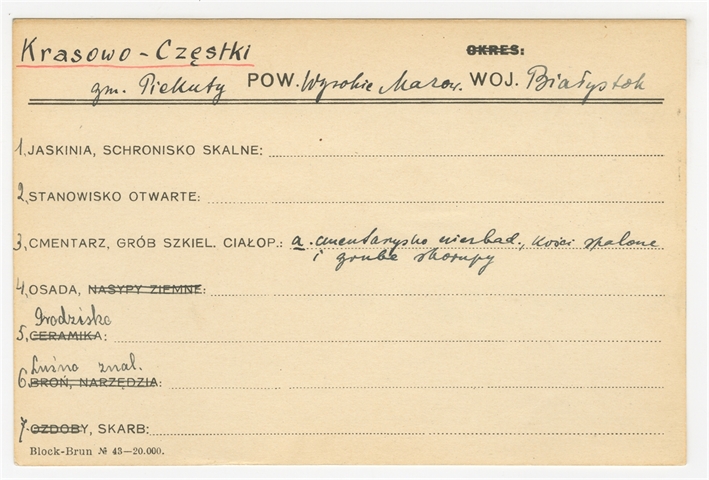 Krasowo-Częstki OKRES:
gm. Piekuty POW. Wysokie Mazow. WOJ. Białystok
1. JASKINIA, SCHRONISKO SKALNE:
2. STANOWISKO OTWARTE:
3. CMENTARZ, GRÓB SZKIEL. CIAŁOP.: a. cmentarzysko niezbad., kości spalone
i grube skorupy
4. OSADA, NASYPY ZIEMNE:
Grodzisko
5. CERAMIKA:
Luźno znal.
6. BROŃ, NARZĘDZIA:
7. OZDOBY, SKARB:
Block-Brun № 43—20.000.